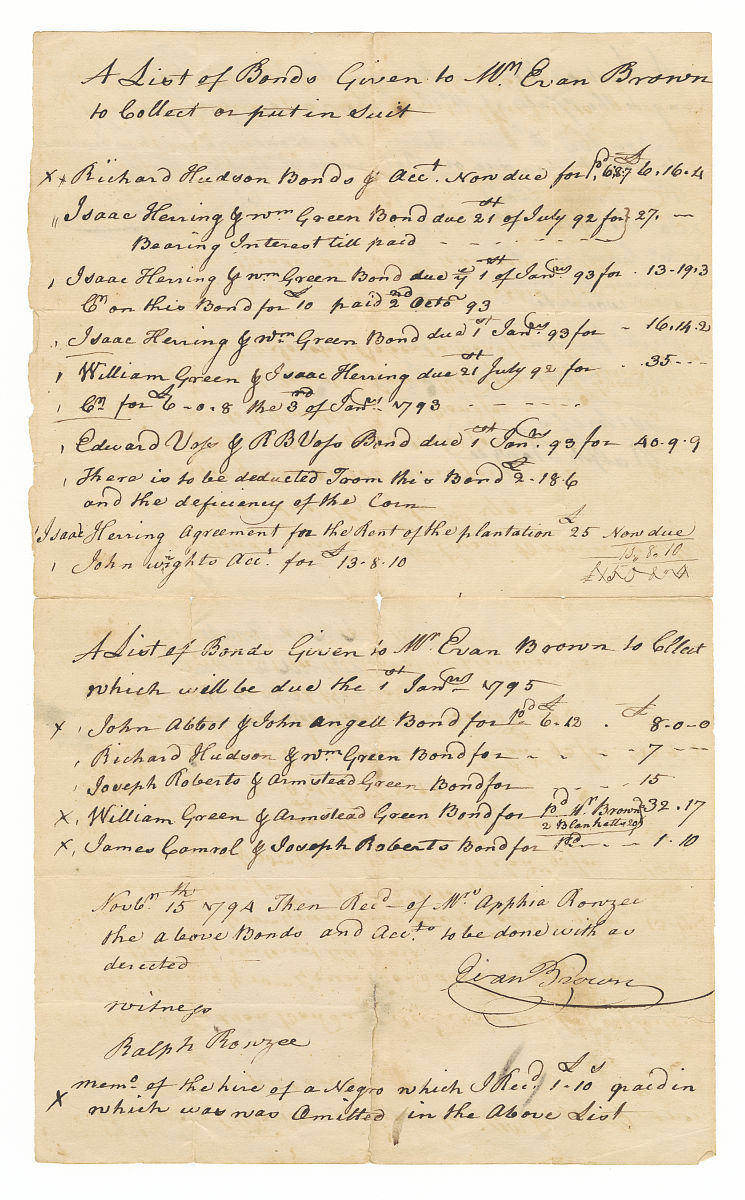 A List of Bonds Given to Mr. Evan Brown
to Collect or put in Suit
x x Richard Hudson Bonds & Acct. Now due for pd £6.16.4
" Isaac Herring & Wm Green Bond due 21st of July 92 for } 27. —
Bearing Interest till paid - - - - - -
, Isaac Herring & Wm Green Bond due ye 1st of Jany 93 for . 13-19.3
Cr on this Bond for £10 paid 2nd Octo 93
, Isaac Herring & Wm Green Bond due 1st Jany 93 for - 16.14.2
, William Green & Isaac Herring due 21st July 92 for . . 35 - - -
, Cr for £6-0-8 the 3rd of Jany 1793 - - - - - -
, Edward Voss & R B Voss Bond due 1st Jany 93 for 40.9.9
, There is to be deducted From this Bond £2.18.6
and the deficiency of the Corn
, Isaac Herring Agreement for the Rent of the plantation £25 Now due
13.8.10
, John Wrights Acct. for £13-8-10
A List of Bonds Given to Mr. Evan Brown to Collect
which will be due the 1st Jany 1795
x , John Abbot & John Angell Bond for pd £6.12 . £ 8-0-0
, Richard Hudson & Wm Green Bond for - - - - 7 - - -
, Joseph Roberts & Armstead Green Bond for - - - 15
x, William Green & Armstead Green Bond for pd Mr Brown } 32.17
2 Blanketts
x, James Camrol & Joseph Roberts Bond for pd - - - 1.10
Novbr 15th 1794 Then Recd of Mrs Apphia Rowzee
the above Bonds and Accts to be done with as
derected
Evan Brown
witness
Ralph Rowzee
x memo. of the hire of a Negro which I Recd £1-10s paid in
which was was Omitted in the Above List